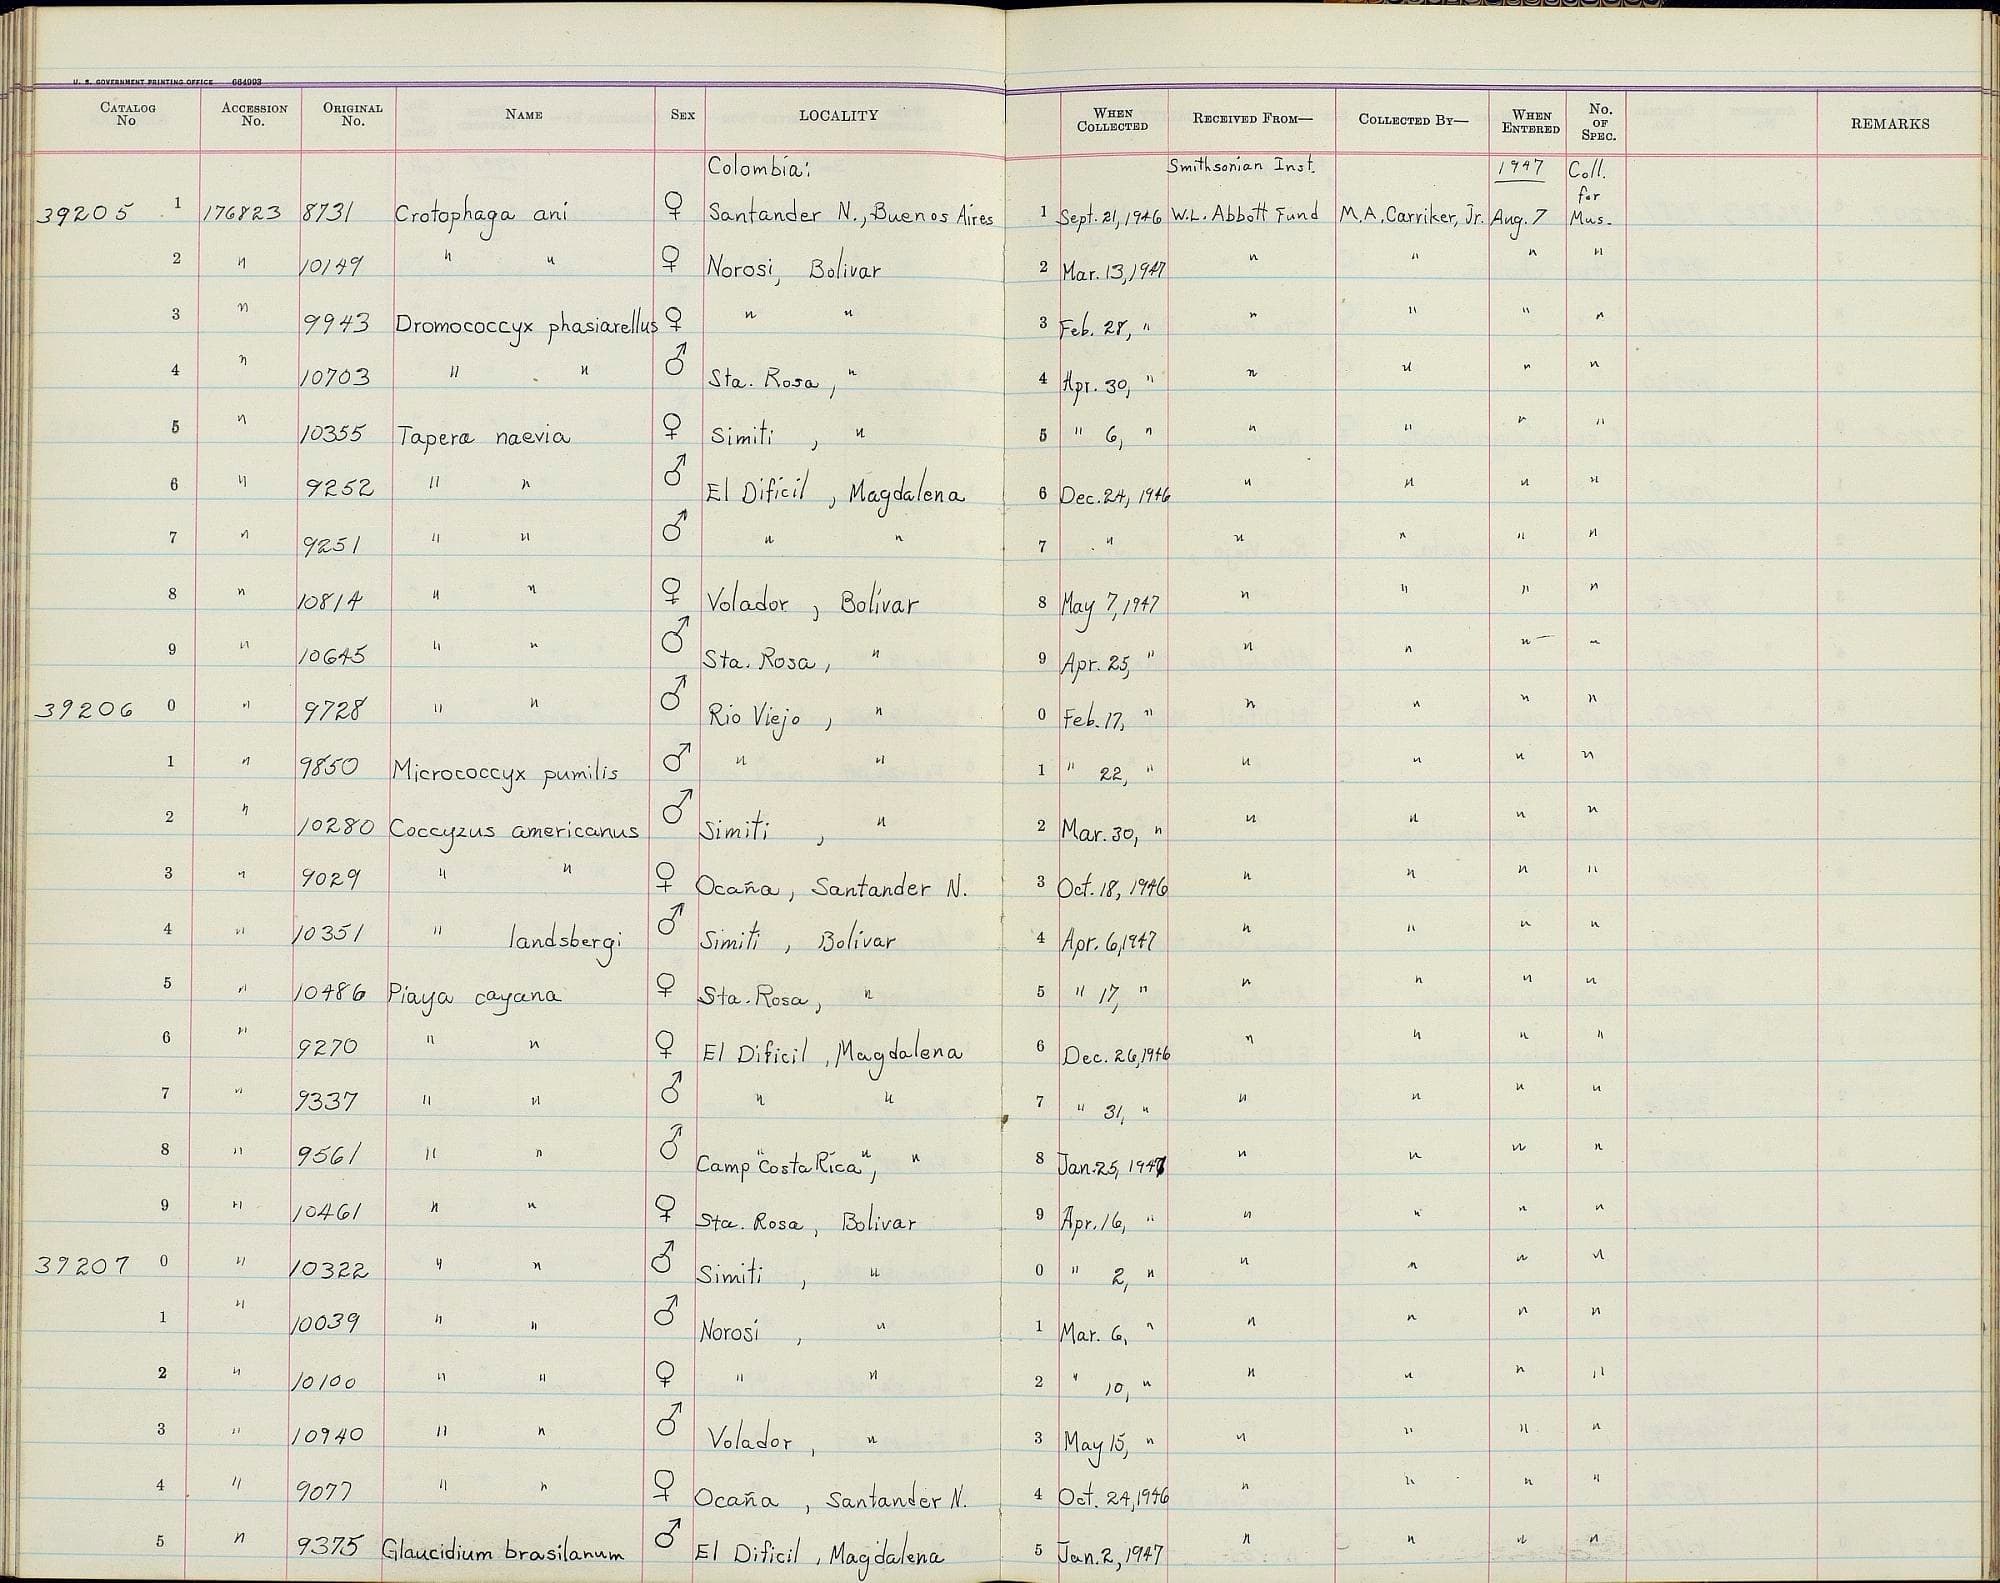 U. S. GOVERNMENT PRINTING OFFICE 664993
CATALOG No ACCESSION No. ORIGINAL No. NAME SEX LOCALITY WHEN COLLECTED RECEIVED FROM— COLLECTED BY— WHEN ENTERED No. OF SPEC. REMARKS
Colombia: Smithsonian Inst. 1947 Coll. for
39205 1 176823 8731 Crotophaga ani ♀ Santander N., Buenos Aires 1 Sept. 21, 1946 W.L. Abbott Fund M.A. Carriker, Jr. Aug. 7 Mus.
2 " 10149 " " ♀ Norosi, Bolivar 2 Mar. 13, 1947 " " " "
3 " 9943 Dromococcyx phasiarellus ♀ " " 3 Feb. 28, " " " " "
4 " 10703 " " ♂ Sta. Rosa, " 4 Apr. 30, " " " " "
5 " 10355 Tapera naevia ♀ Simiti, " 5 " 6, " " " " "
6 " 9252 " " ♂ El Dificil, Magdalena 6 Dec. 24, 1946 " " " "
7 " 9251 " " ♂ " " 7 " " " " "
8 " 10814 " " ♀ Volador, Bolivar 8 May 7, 1947 " " " "
9 " 10645 " " ♂ Sta. Rosa, " 9 Apr. 25, " " " " "
39206 0 " 9728 " " ♂ Rio Viejo, " 0 Feb. 17, " " " " "
1 " 9850 Micrococcyx pumilis ♂ " " 1 " 22, " " " " "
2 " 10280 Coccyzus americanus ♂ Simiti, " 2 Mar. 30, " " " " "
3 " 9029 " " ♀ Ocaña, Santander N. 3 Oct. 18, 1946 " " " "
4 " 10351 " landsbergi ♂ Simiti, Bolivar 4 Apr. 6, 1947 " " " "
5 " 10486 Piaya cayana ♀ Sta. Rosa, " 5 " 17, " " " " "
6 " 9270 " " ♀ El Dificil, Magdalena 6 Dec. 26, 1946 " " " "
7 " 9337 " " ♂ " " 7 " 31, " " " " "
8 " 9561 " " ♂ Camp "Costa Rica", " 8 Jan. 25, 1947 " " " "
9 " 10461 " " ♀ Sta. Rosa, Bolivar 9 Apr. 16, " " " " "
39207 0 " 10322 " " ♂ Simiti, " 0 " 2, " " " " "
1 " 10039 " " ♂ Norosi, " 1 Mar. 6, " " " " "
2 " 10100 " " ♀ " " 2 " 10, " " " " "
3 " 10940 " " ♂ Volador, " 3 May 15, " " " " "
4 " 9077 " " ♀ Ocaña, Santander N. 4 Oct. 24, 1946 " " " "
5 " 9375 Glaucidium brasilanum ♂ El Dificil, Magdalena 5 Jan. 2, 1947 " " " "